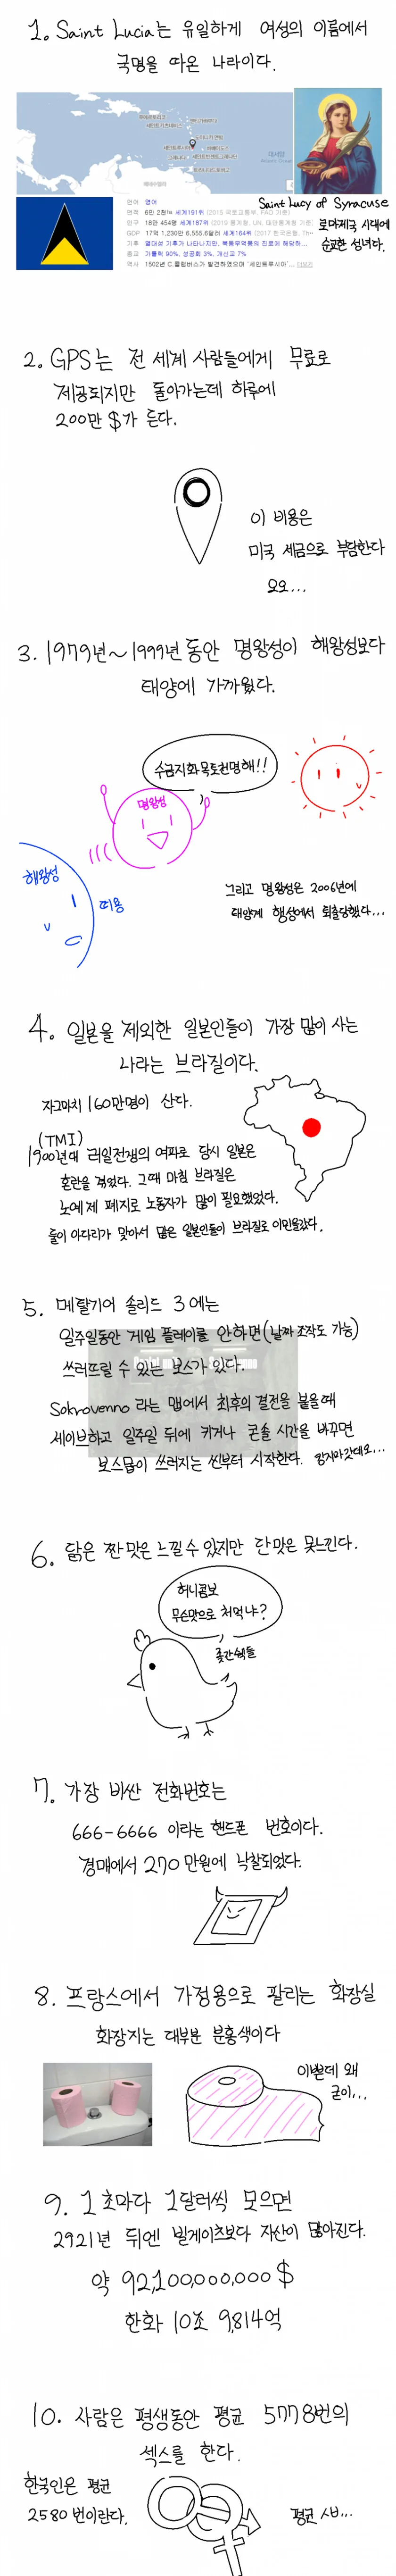 1. Saint Lucia는 유일하게 여성의 이름에서
국명을 따온 나라이다.
언어 영어
면적 6만 2천㏊ 세계191위 (2015 국토교통부, FAO 기준)
인구 18만 454명 세계187위 (2019 통계청, UN, 대만통계청 기준)
GDP 17억 1,230만 6,555.6달러 세계164위 (2017 한국은행,
기후 열대성 기후가 나타나지만, 북동무역풍의 진로에 해당하...
종교 가톨릭 90%, 성공회 3%, 개신교 7%
역사 1502년 C.콜럼버스가 발견하였으며 '세인트루시아'... 더보기
Saint Lucy of Syracuse
로마제국 시대에
순교한 성녀다.
2. GPS는 전 세계 사람들에게 무료로
제공되지만 돌아가는데 하루에
200만 $가 든다.
이 비용은
미국 세금으로 부담한다
오오...
3. 1979년~1999년 동안 명왕성이 해왕성보다
태양에 가까웠다.
수금지화목토천명해!!
명왕성
해왕성
띠용
그리고 명왕성은 2006년에
태양계 행성에서 퇴출당했다...
4. 일본을 제외한 일본인들이 가장 많이 사는
나라는 브라질이다.
자그마치 160만명이 산다.
(TMI)
1900년대 러일전쟁의 여파로 당시 일본은
혼란을 겪었다. 그때 마침 브라질은
노예제 폐지로 노동자가 많이 필요했었다.
둘이 아다리가 맞아서 많은 일본인들이 브라질로 이민을갔다.
5. 메탈기어 솔리드 3에는
일주일동안 게임 플레이를 안하면(날짜 조작도 가능)
쓰러뜨릴 수 있는 보스가 있다.
Sokrovenno 라는 맵에서 최후의 결전을 붙을때
세이브하고 일주일 뒤에 키거나 콘솔 시간을 바꾸면
보스몹이 쓰러지는 씬부터 시작한다. 킹지마갓데오...
6. 닭은 짠맛은 느낄 수 있지만 단맛은 못느낀다.
허니콤보
무슨맛으로 처먹냐?
좆간쉑들
7. 가장 비싼 전화번호는
666-6666 이라는 핸드폰 번호이다.
경매에서 270만원에 낙찰되었다.
8. 프랑스에서 가정용으로 팔리는 화장실
화장지는 대부분 분홍색이다
이쁜데 왜
굳이...
9. 1초마다 1달러씩 모으면
2921년 뒤엔 빌게이츠보다 자산이 많아진다.
약 92,100,000,000 $
한화 10조 9,814억
10. 사람은 평생동안 평균 5778번의
섹스를 한다.
한국인은 평균
2580번이란다.
평균 ㅅㅂ...